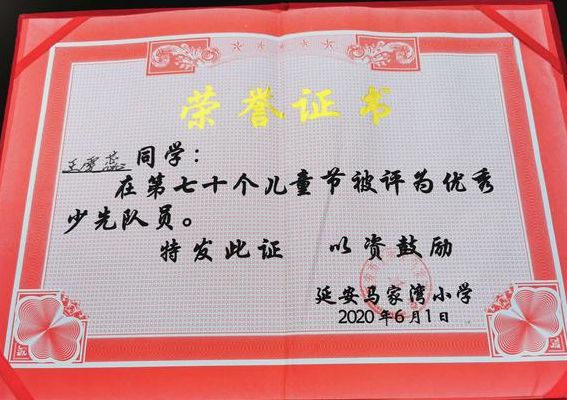 荣誉证书
王雯蕊 同学：
在第七十个儿童节被评为优秀
少先队员。
特发此证 以资鼓励
延安马家湾小学
2020年6月1日